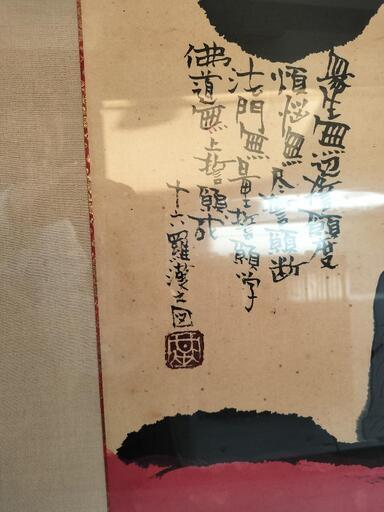 衆生無辺誓願度
煩悩無尽誓願断
法門無量誓願学
佛道無上誓願成
十六羅漢之図